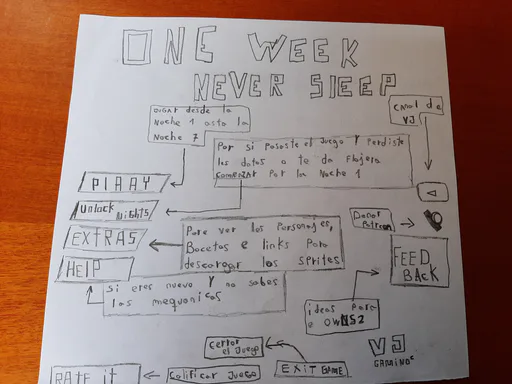 ONE WEEK
NEVER SlEEP
JUGAR desde la
Noche 1 asta la
Noche 7
Canal de
VJ
Por si pasaste el Juego Y Perdiste
las datos o te da Flojera
comenzar Por la Noche 1
PlAAY
Unlock Nights
EXTRAS
HELP
Para ver los Personajes,
Bocetos e links Para
descargar los sprites
Donar
Patreon
FEED
BACK
Si eres nuevo Y no sabes
las mequanicas
ideas Para
OWNS2
Cerrar
el Juego
EXIT GAME
VJ
GAMING
RATE it
Calificar Juego